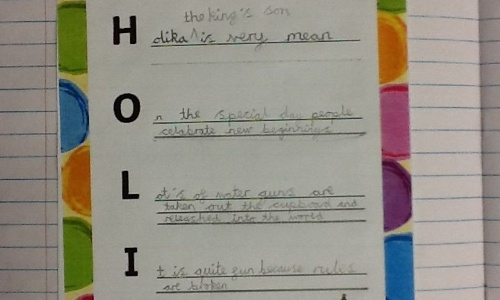 the king's son
H
dika ^ is very mean
O
n the special day people
celebrate new beginnings
L
ot's of water guns are
taken out the cupboard and
released into the world
I
t is quite fun because rules
are broken